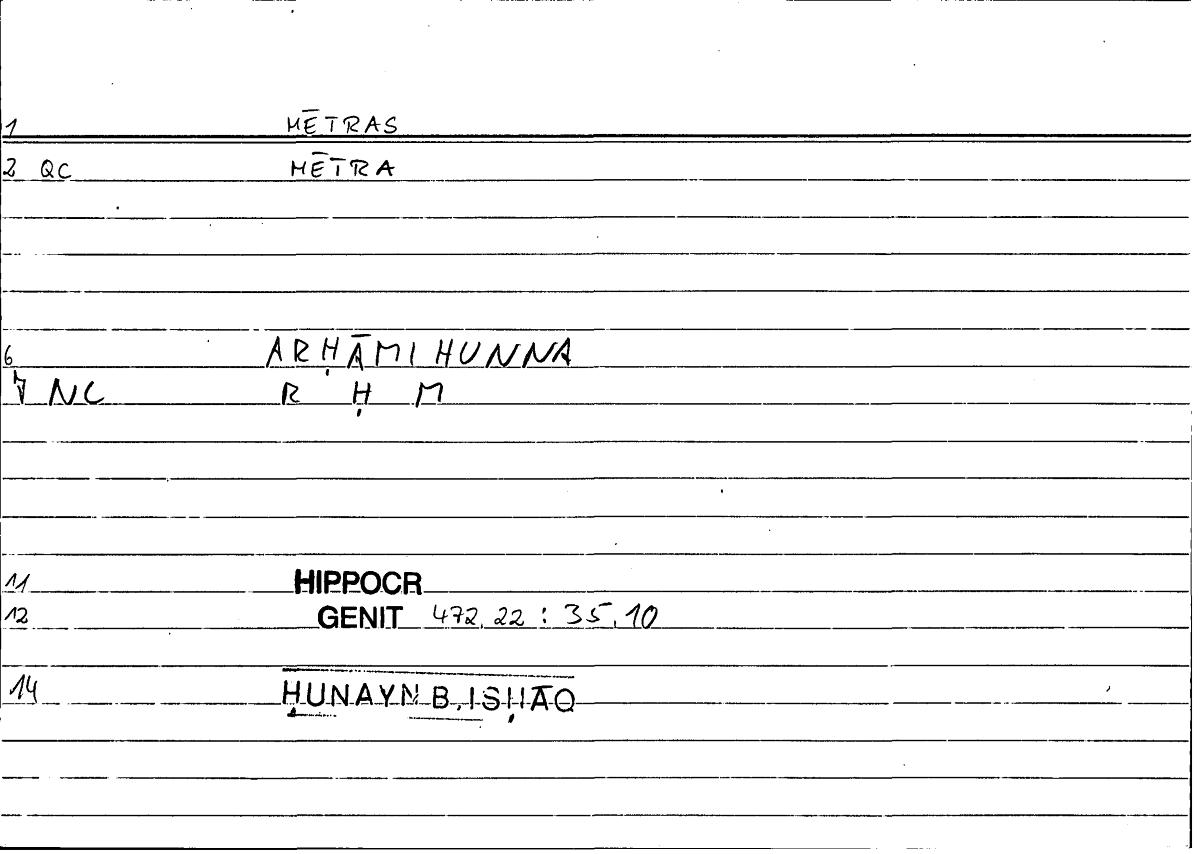 1 MĒTRAS
2 QC MĒTRA
6 ARḤĀMIHUNNA
7 NC R Ḥ M
11 HIPPOCR
12 GENIT 472,22 : 35,10
14 ḤUNAYN B. ISḤĀQ